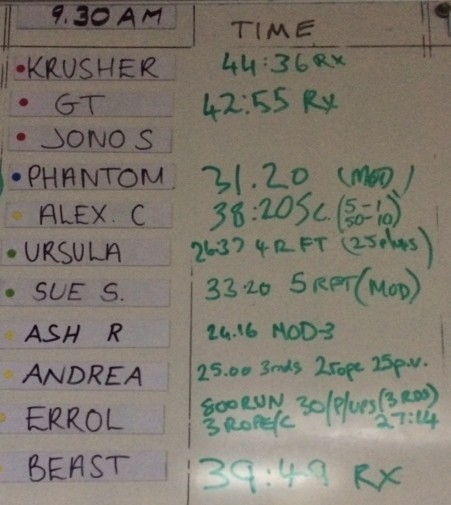 9.30 AM TIME
KRUSHER 44:36 RX
GT 42:55 RX
JONO S
PHANTOM 31.20 (MOD)
ALEX. C 38:20 SC. (5-1
50-10)
URSULA 26.37 4R FT (25
SUE S. 33.20 5 RFT (MOD)
ASH R 24.16 MOD-3
ANDREA 25.00 3rnds 2rope 25p.v.
ERROL 800RUN 30/P/UPS (3 RDS)
3 ROPE/C 27:14
BEAST 39:49 RX